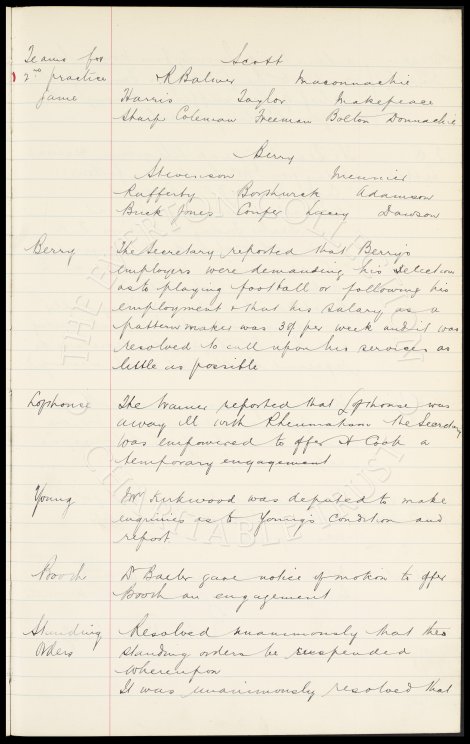 Teams for Scott
2nd practice R Balmer Maconnachie
game Harris Taylor Makepeace
Sharp Coleman Freeman Bolton Donnachie
Berry
Stevenson Meunier
Rafferty Borthwick Adamson
Buck Jones Couper Lacey Dawson
Berry The Secretary reported that Berry's
employers were demanding his selection
as to playing football or following his
employment & that his salary as a
pattern maker was per week and it was
resolved to call upon his services as
little as possible
Lofthouse The trainer reported that Lofthouse was
away ill with Rheumatism the Secretary
was empowered to offer A Cook a
temporary engagement
Young Mr Kirkwood was deputed to make
enquiries as to Young's condition and
report
Pooch Dr Baxter gave notice of motion to offer
Booch an engagement
Standing Resolved unanimously that the
Orders standing orders be suspended
whereupon
It was unanimously resolved that
THE EVERTON COLLECTION
CHARITABLE TRUST